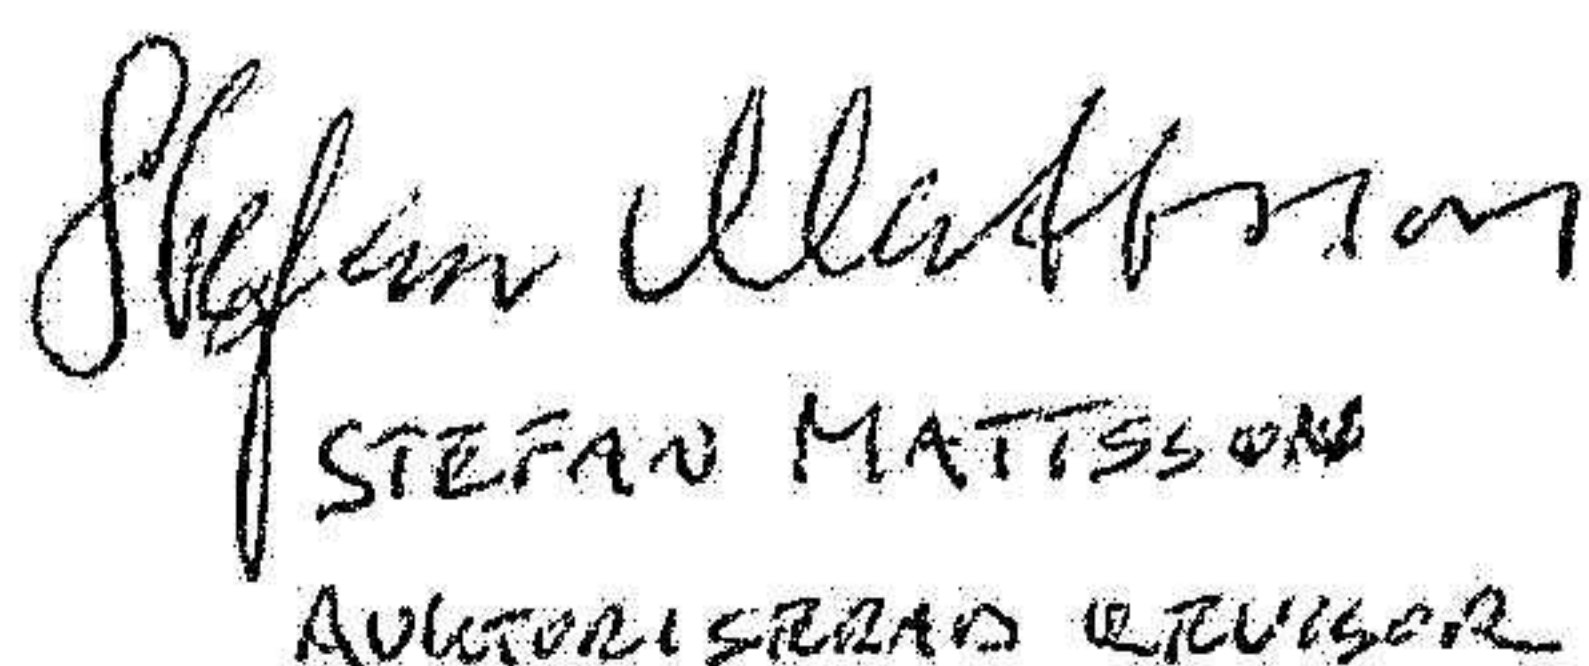 Stefan Mattsson
STEFAN MATTSSON
AUKTORISERAD REVISOR